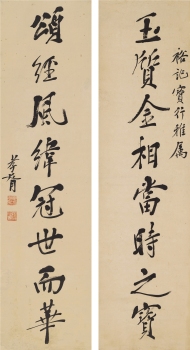 裕記寶行雅屬
玉質金相當時之寶
頌經風緯冠世而華
孝胥